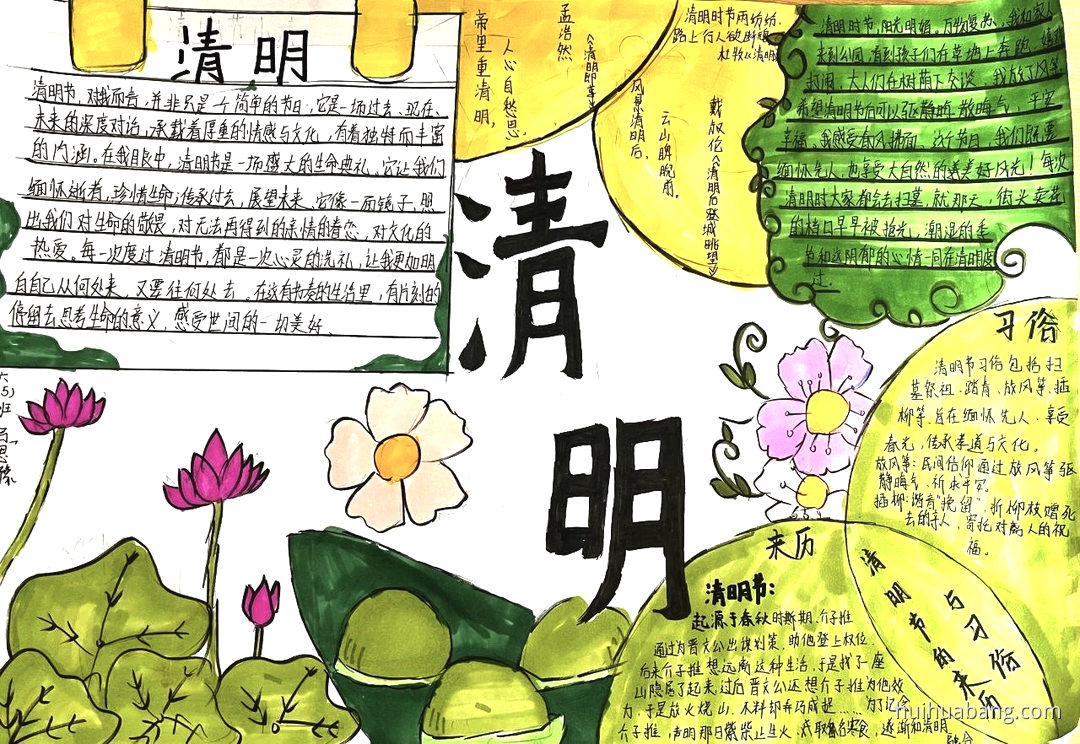 清明
清明节,对我而言,并非只是一个简单的节日,它是一场过去、现在、
未来的深度对话,承载着厚重的情感与文化,有着独特而丰富
的内涵。在我眼中,清明节是一场盛大的生命典礼。它让我们
缅怀逝者,珍惜生命;传承过去,展望未来。它像一面镜子,照
出我们对生命的敬畏,对无法再得到的亲情的眷恋,对文化的
热爱。每一次度过清明节,都是一次心灵的洗礼,让我更加明
白自己从何处来,又要往何处去。在这有节奏的生活里,有片刻的
停留去思考生命的意义,感受世间的一切美好。
孟浩然
《清明即事》
帝里重清明,
人心自愁思。
清明时节雨纷纷,
路上行人欲断魂
杜牧《清明》
戴叔伦《清明日登城眺望》
风景清明后,
云山睥睨前。
清明时节,阳光明媚,万物复苏,我和家人
来到公园,看到孩子们在草地上奔跑、嬉戏
打闹,大人们在树荫下交谈,我放了风筝
希望清明节后可以驱静晦,散晦气,平安
幸福。我感受春风拂面,这个节日,我们既要
缅怀先人,也享受大自然的美好风光!每次
清明时大家都会去扫墓,就那天,街头卖花
的档口早早被抢光,潮湿的季
节和这阴郁的心情一同在清明度
过.
清
明
习俗
清明节习俗包括扫
墓祭祖、踏青、放风筝、插
柳等,旨在缅怀先人、享受
春光,传承孝道与文化。
放风筝:民间信仰通过放风筝驱
静晦气、祈求平安。
插柳:谐音"挽留",折柳枝赠死
去的亲人、寄托对离人的祝
福。
来历
清明节:
起源于春秋时期期.介子推
通过为晋文公出谋划策,助他登上权位.
后来介子推想远离这种生活,于是找了一座
山隐居了起来.过后晋文公还想介子推为他效
力,于是放火烧山,不料却弄巧成拙……为了记念
介子推,声明那日禁柴止生火,只取食寒食,逐渐和清明
融合
清明节的来历
与习俗
huihuabang.com